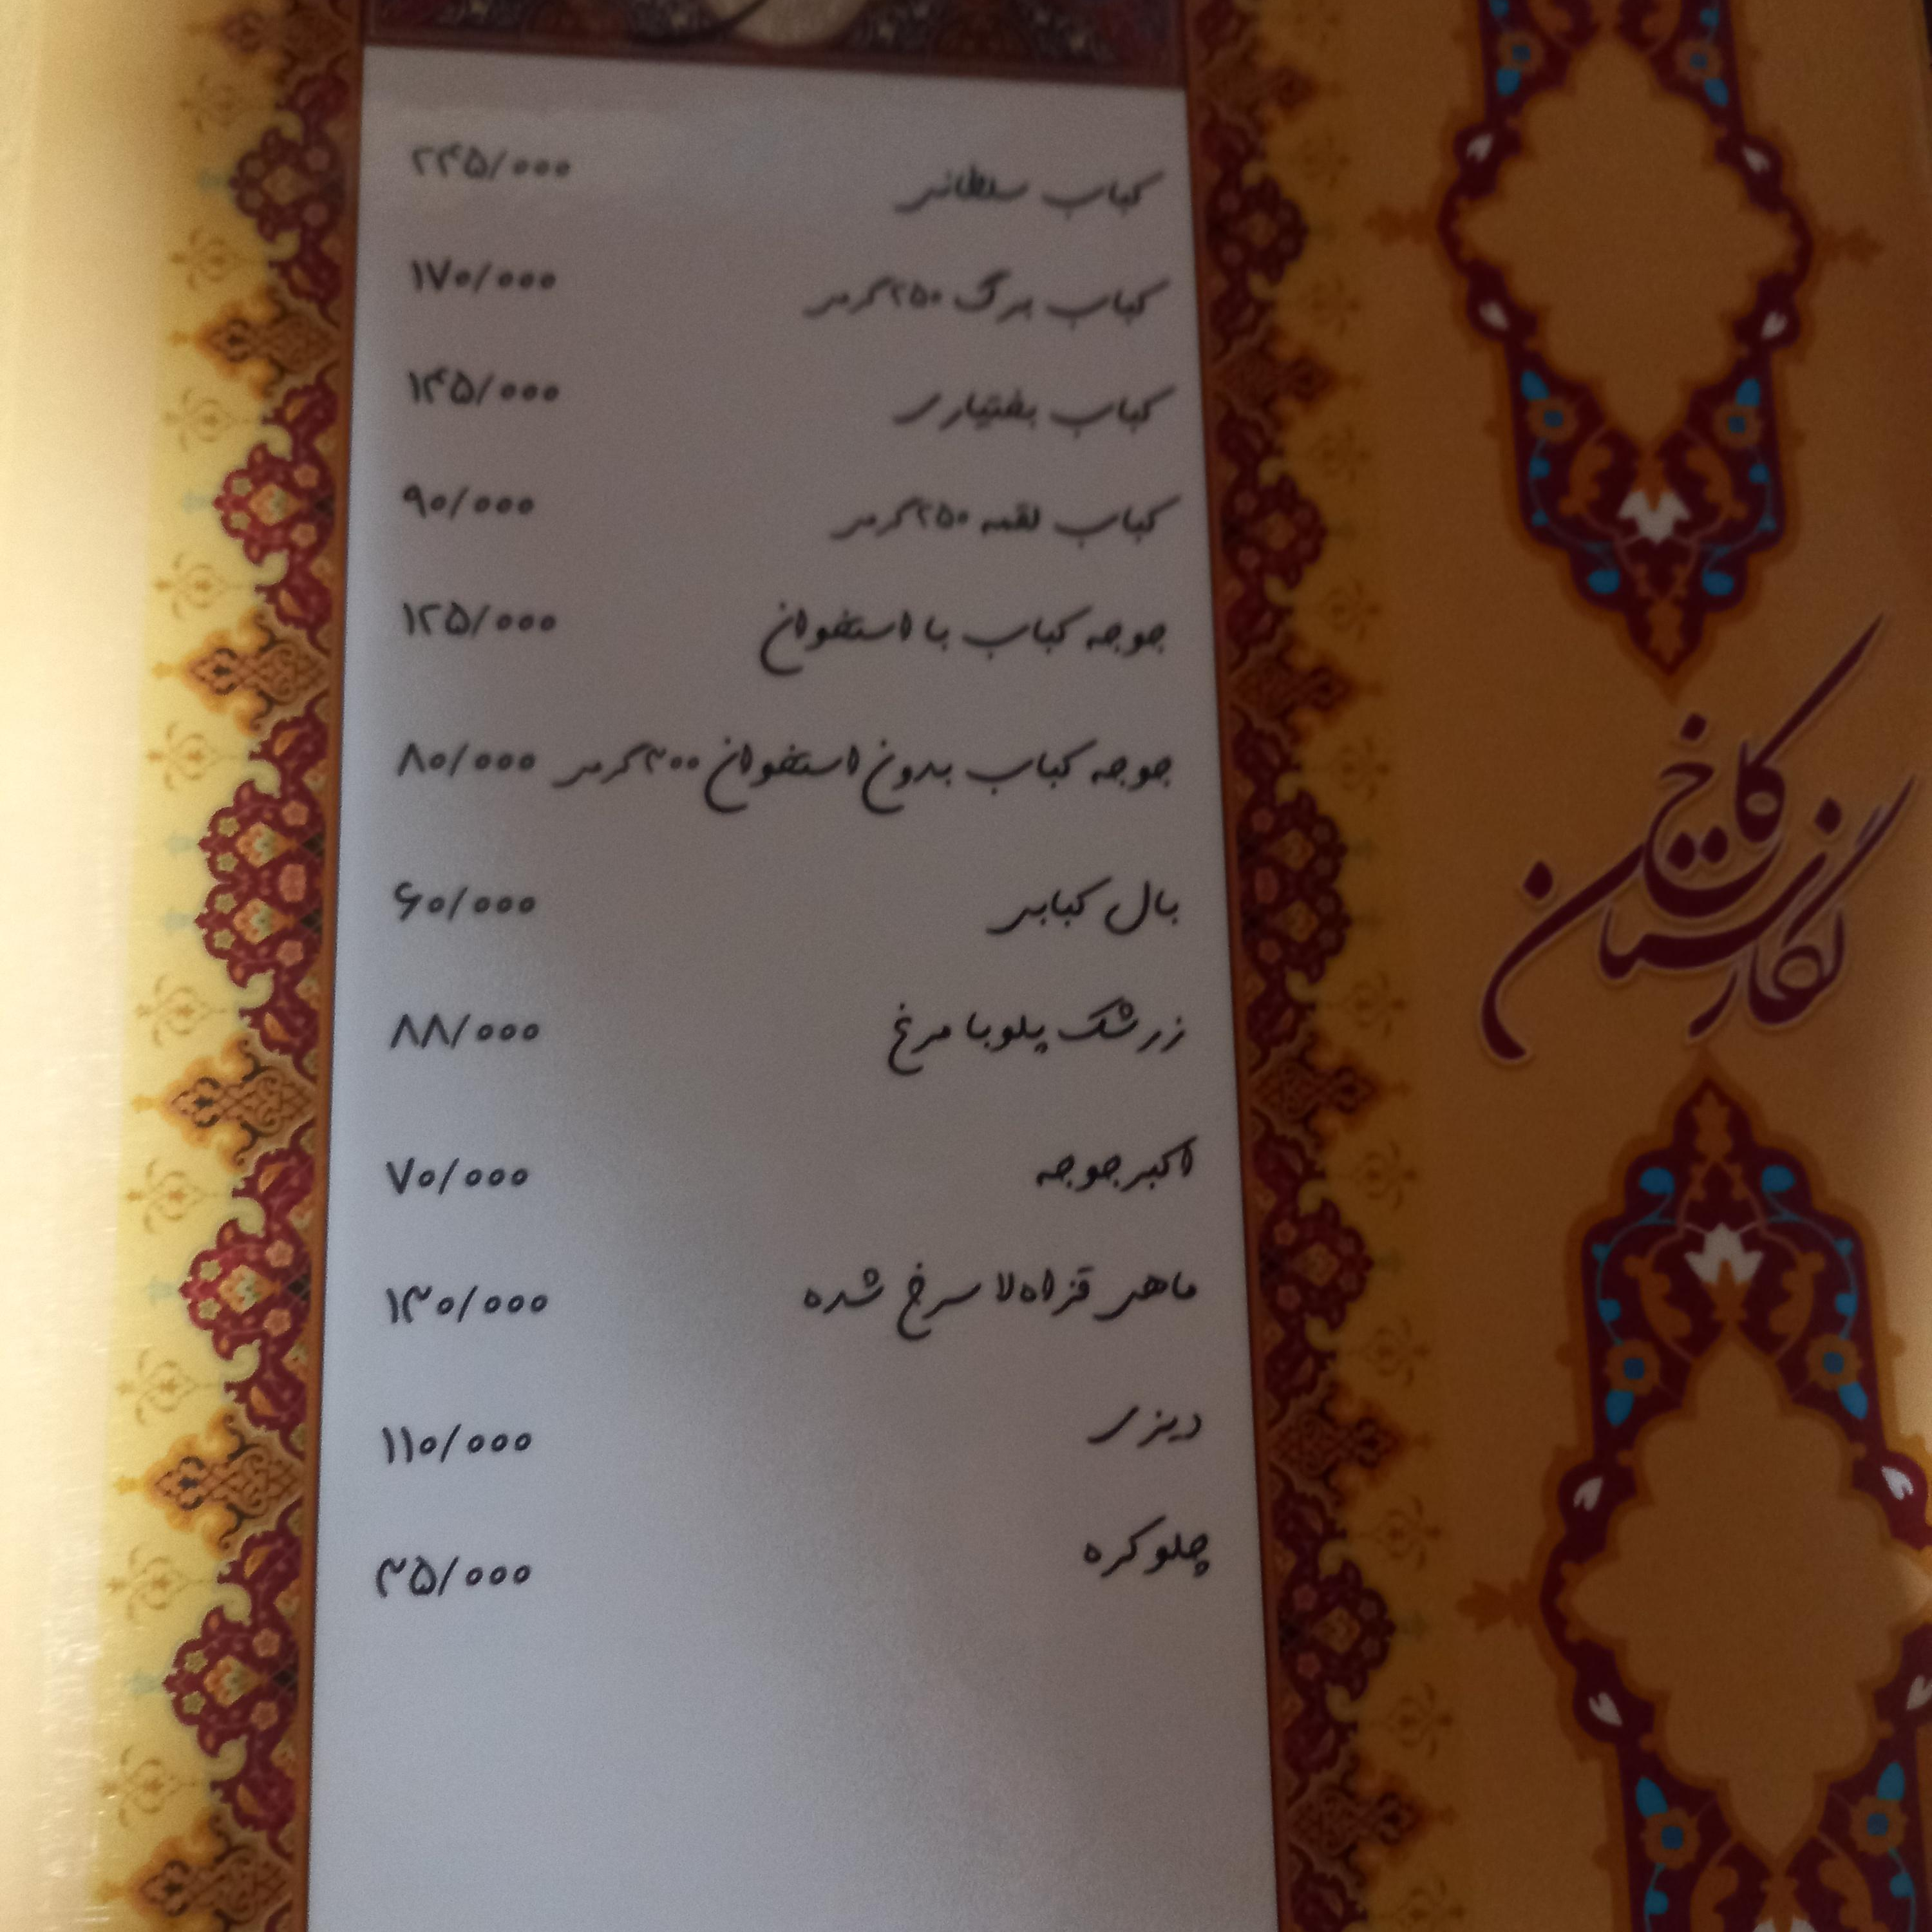 کباب سلطانی ۲۴۵/۰۰۰
کباب برگ ۲۵۰گرمی ۱۷۰/۰۰۰
کباب بختیاری ۱۴۵/۰۰۰
کباب لقمه ۲۵۰گرمی ۹۰/۰۰۰
جوجه کباب با استخوان ۱۲۵/۰۰۰
جوجه کباب بدون استخوان ۳۰۰گرمی ۸۰/۰۰۰
بال کبابی ۶۰/۰۰۰
زرشک پلوبا مرغ ۸۸/۰۰۰
اکبرجوجه ۷۰/۰۰۰
ماهی قزاه‌لا سرخ شده ۱۳۰/۰۰۰
دیزی ۱۱۰/۰۰۰
چلوکره ۳۵/۰۰۰
کاخ
نگارستان